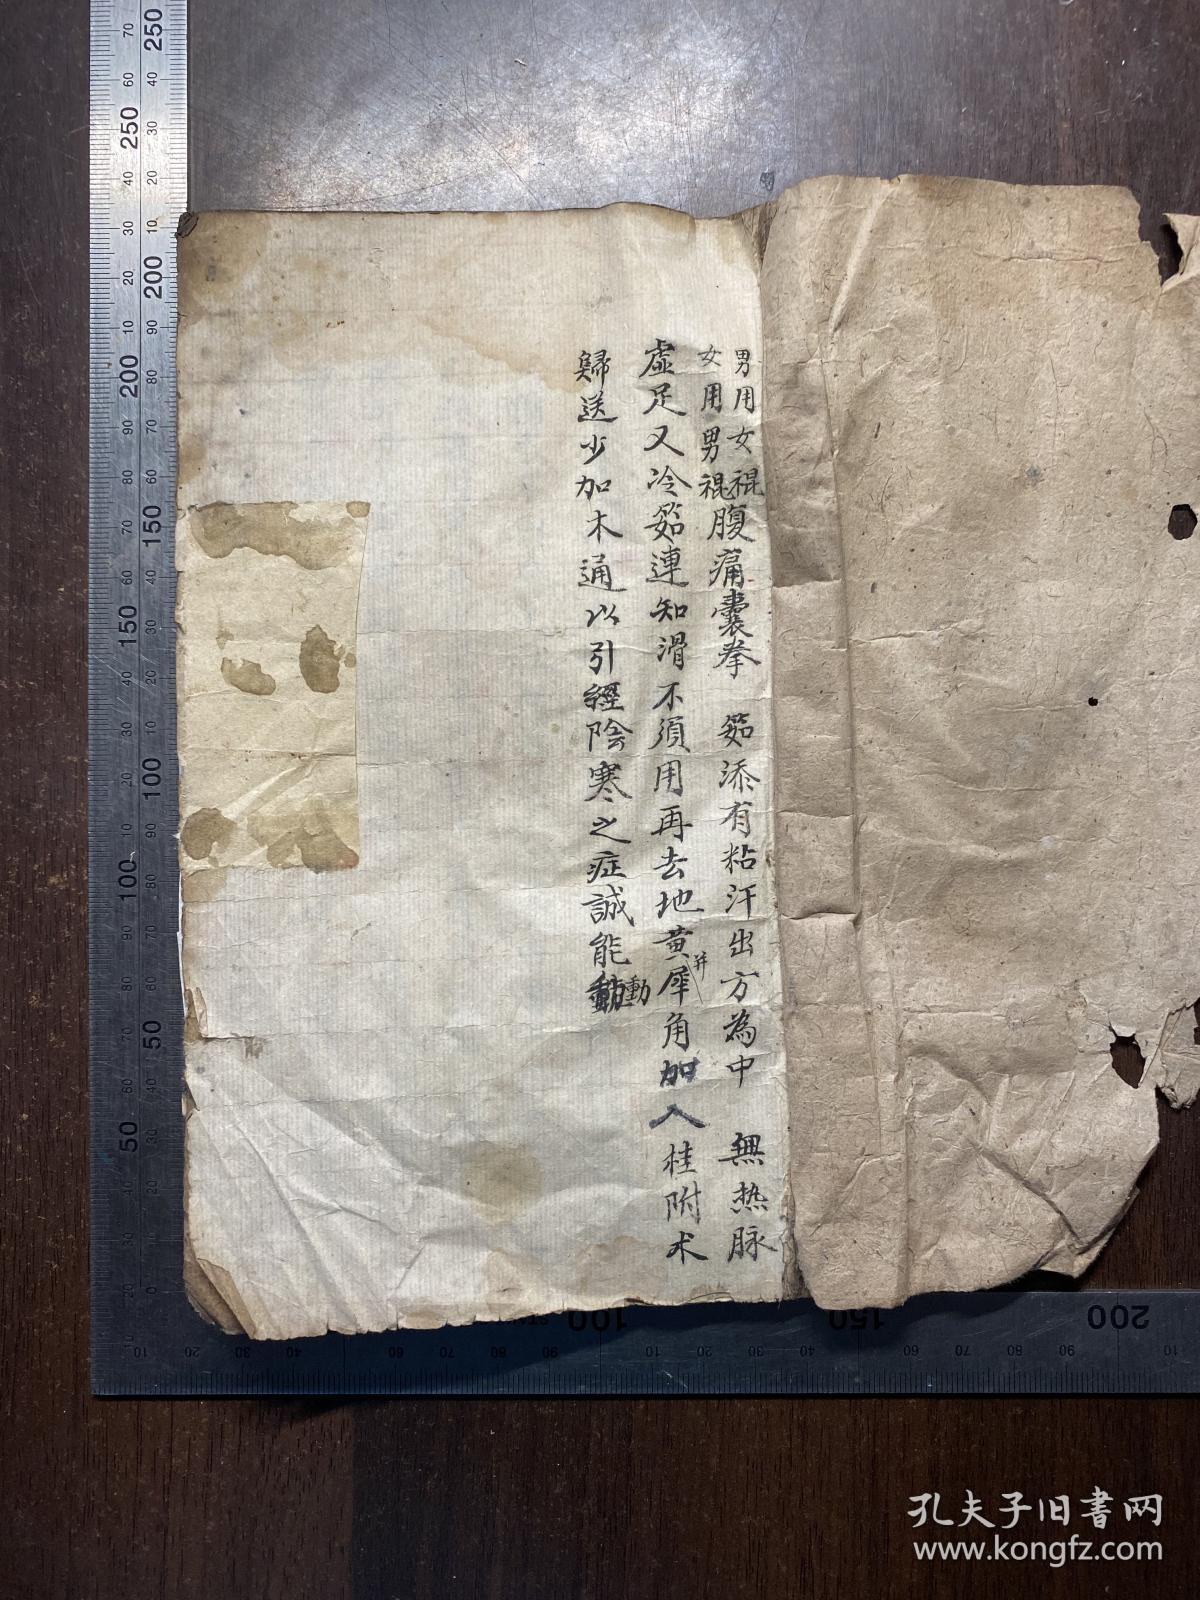 男用女裩
女用男裩
腹痛囊拳 筎添有粘汗出方為中 無热脉
虛足又冷筎連知滑不須用再去地黃犀角加入桂附术
并
歸送少加木通以引經陰寒之症誠能動
動
孔夫子旧书网
www.kongfz.com